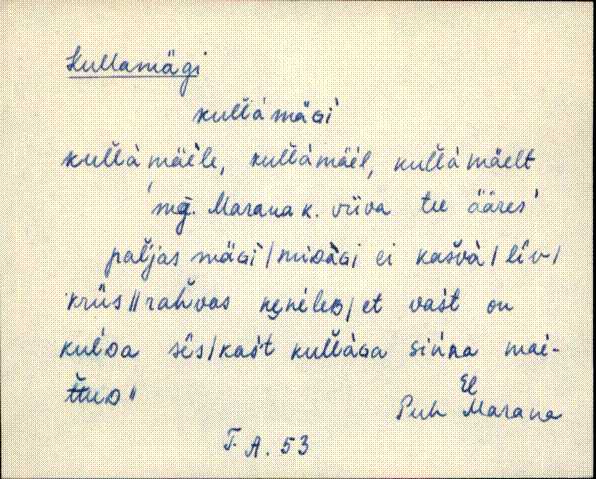 Kullamägi
kul̆làmäGì
kul̆làmäèle, kul̆làmäèl, kul̆làmäelt
mg. Marana k. viiva tee ääres
pal̆jas mäGì/miDàGi ei kasvà/līv/
krūs // rahvas kenèleD/et vašt on
kulda sēs/kašt kul̆làGa sińna maè-
ttuD //
El
Puh Marana
T. A. 53